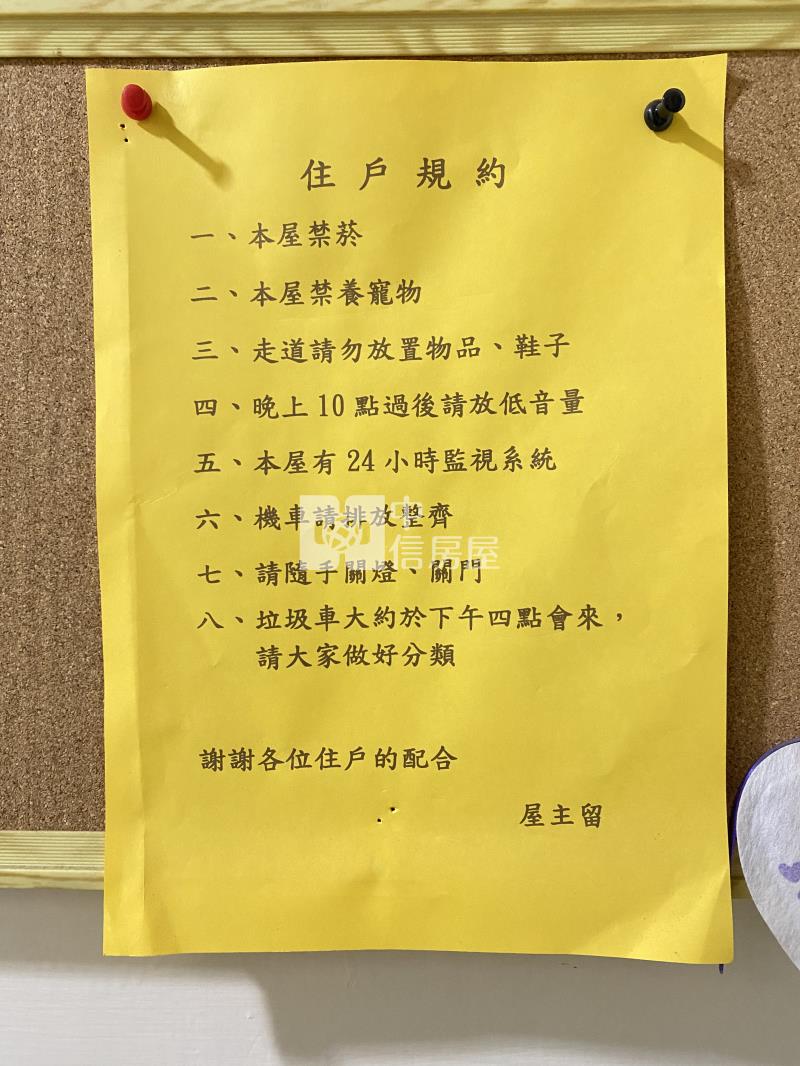 住戶規約
一、本屋禁菸
二、本屋禁養寵物
三、走道請勿放置物品、鞋子
四、晚上10點過後請放低音量
五、本屋有24小時監視系統
六、機車請排放整齊
中信房屋
七、請隨手關燈、關門
八、垃圾車大約於下午四點會來，
請大家做好分類
謝謝各位住戶的配合
屋主留